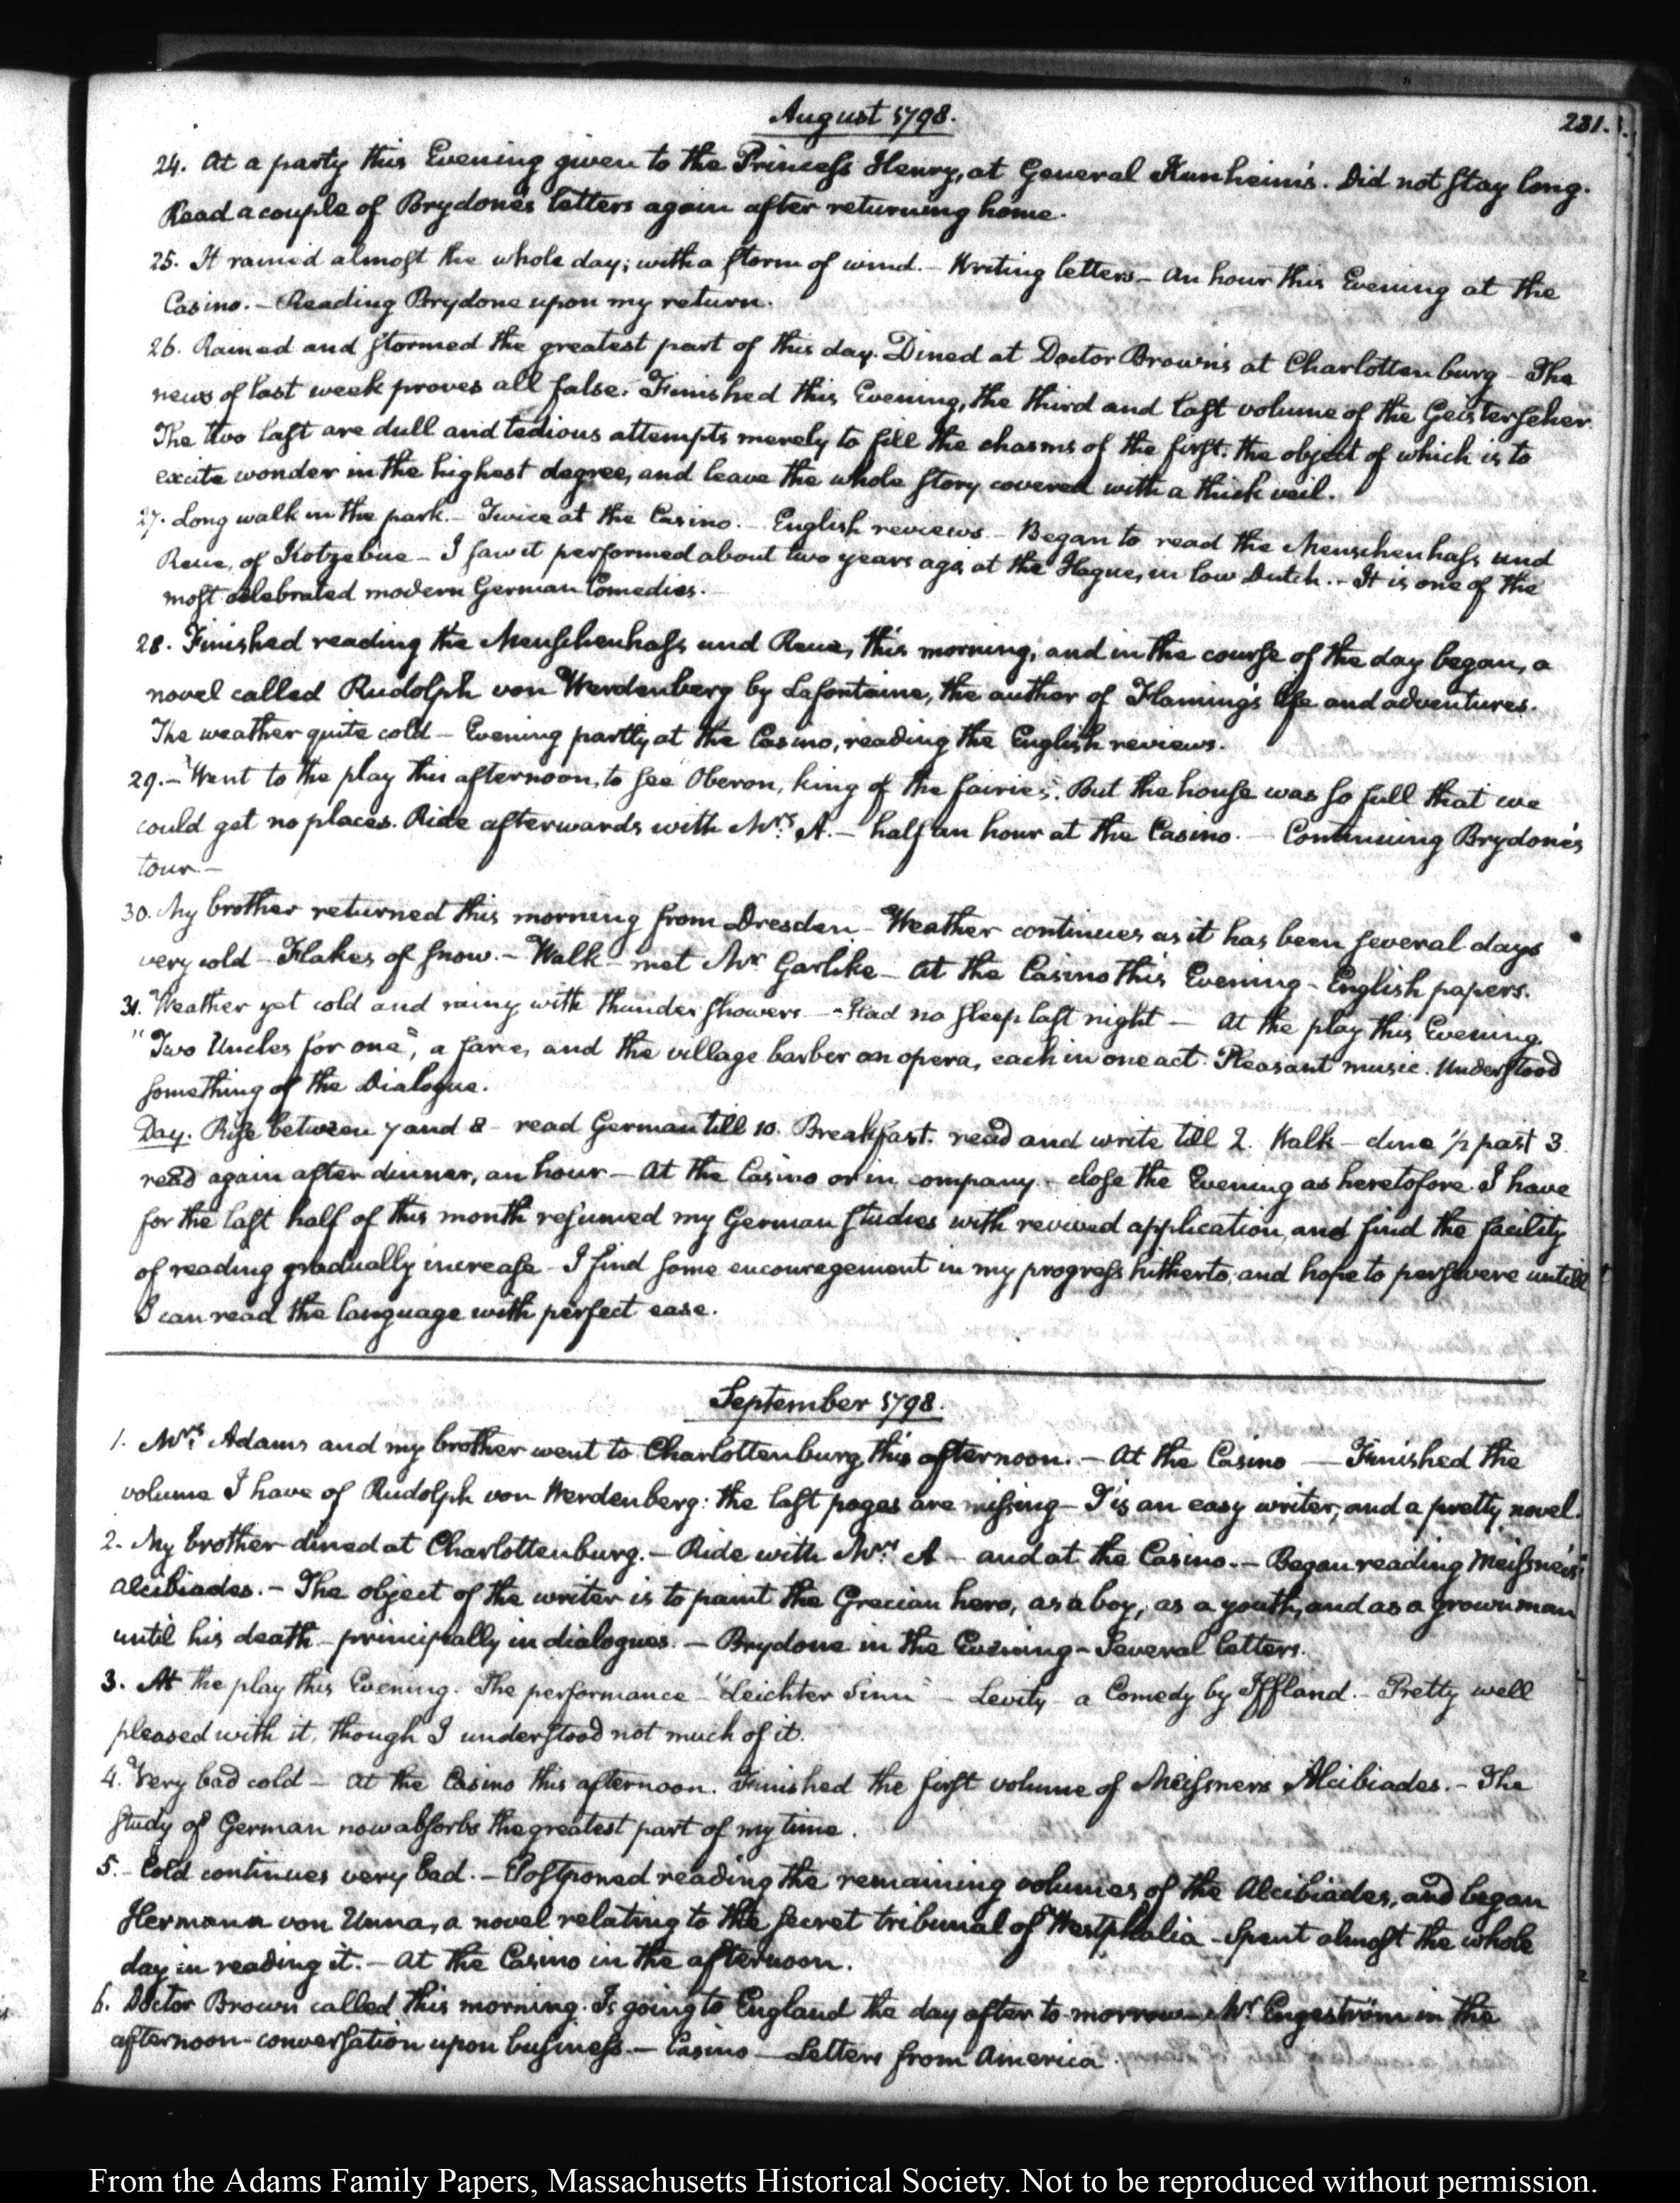 August 1798.
231.
24. At a party this Evening given to the Princess Henry, at General Kunheim's. Did not stay long.
Read a couple of Brydone's letters again after returning home.
25. It rained almost the whole day; with a storm of wind. – Writing letters – An hour this Evening at the
Casino. – Reading Brydone upon my return.
26. Rained and stormed the greatest part of this day. Dined at Doctor Brown's at Charlottenburg – The
news of last week proves all false. Finished this Evening, the third and last volume of the Geisterseher.
The two last are dull and tedious attempts merely to fill the chasms of the first. the object of which is to
excite wonder in the highest degree, and leave the whole story covered with a thick veil.
27. Long walk in the park. – Twice at the Casino. – English reviews – Began to read the Menschenhass und
Reue, of Kotzebue – I saw it performed about two years ago, at the Hague, in low Dutch. – It is one of the
most celebrated modern German Comedies.
28. Finished reading the Menschenhass und Reue, this morning, and in the course of the day began, a
novel called Rudolph von Werdenberg by Lafontaine, the author of Flaming's life and adventures.
The weather quite cold – Evening partly at the Casino, reading the English reviews.
29. – Went to the play this afternoon, to see "Oberon, king of the fairies". But the house was so full that we
could get no places. Ride afterwards with Mrs. A. – half an hour at the Casino. – Continuing Brydone's
tour –
30. My brother returned this morning from Dresden – Weather continues as it has been several days
very cold – Flakes of snow. – Walk – met Mr. Garlike – At the Casino this Evening – English papers.
31. Weather yet cold and rainy with thunder showers – Had no sleep last night – At the play this Evening.
"Two Uncles for one", a farce, and the village barber an opera, each in one act. Pleasant music. Understood
something of the Dialogue.
Day. Rise between 7 and 8 – read German till 10. Breakfast. read and write till 2. Walk – dine 1/2 past 3.
read again after dinner, an hour – At the Casino or in company – close the Evening as heretofore. I have
for the last half of this month resumed my German studies with revived application, and find the facility
of reading gradually increase – I find some encouragement in my progress hitherto, and hope to persevere untill
I can read the language with perfect ease.
September 1798.
1. Mrs. Adams and my brother went to Charlottenburg, this afternoon. – At the Casino – Finished the
volume I have of Rudolph von Werdenberg: the last pages are missing – 'Tis an easy writer, and a pretty novel.
2. My brother dined at Charlottenburg. – Ride with Mrs. A – and at the Casino. – Began reading Meissner's
Alcibiades. – The object of the writer is to paint the Grecian hero, as a boy, as a youth, and as a grown man
until his death – principally in dialogues. – Brydone in the Evening – Several letters.
3. At the play this Evening. The performance – "Leichter Sinn" – Levity – a Comedy by Iffland. – Pretty well
pleased with it, though I understood not much of it.
4. Very bad cold – At the Casino this afternoon. Finished the first volume of Meissners Alcibiades. – The
study of German now absorbs the greatest part of my time.
5. – Cold continues very bad. – Postponed reading the remaining volumes of the Alcibiades, and began
Hermann von Unna, a novel relating to the secret tribunal of Westphalia – Spent almost the whole
day in reading it. – At the Casino in the afternoon.
6. Doctor Brown called this morning. Is going to England the day after to-morrow – Mr. Engeström in the
afternoon – conversation upon business. – Casino – Letters from America.
From the Adams Family Papers, Massachusetts Historical Society. Not to be reproduced without permission.